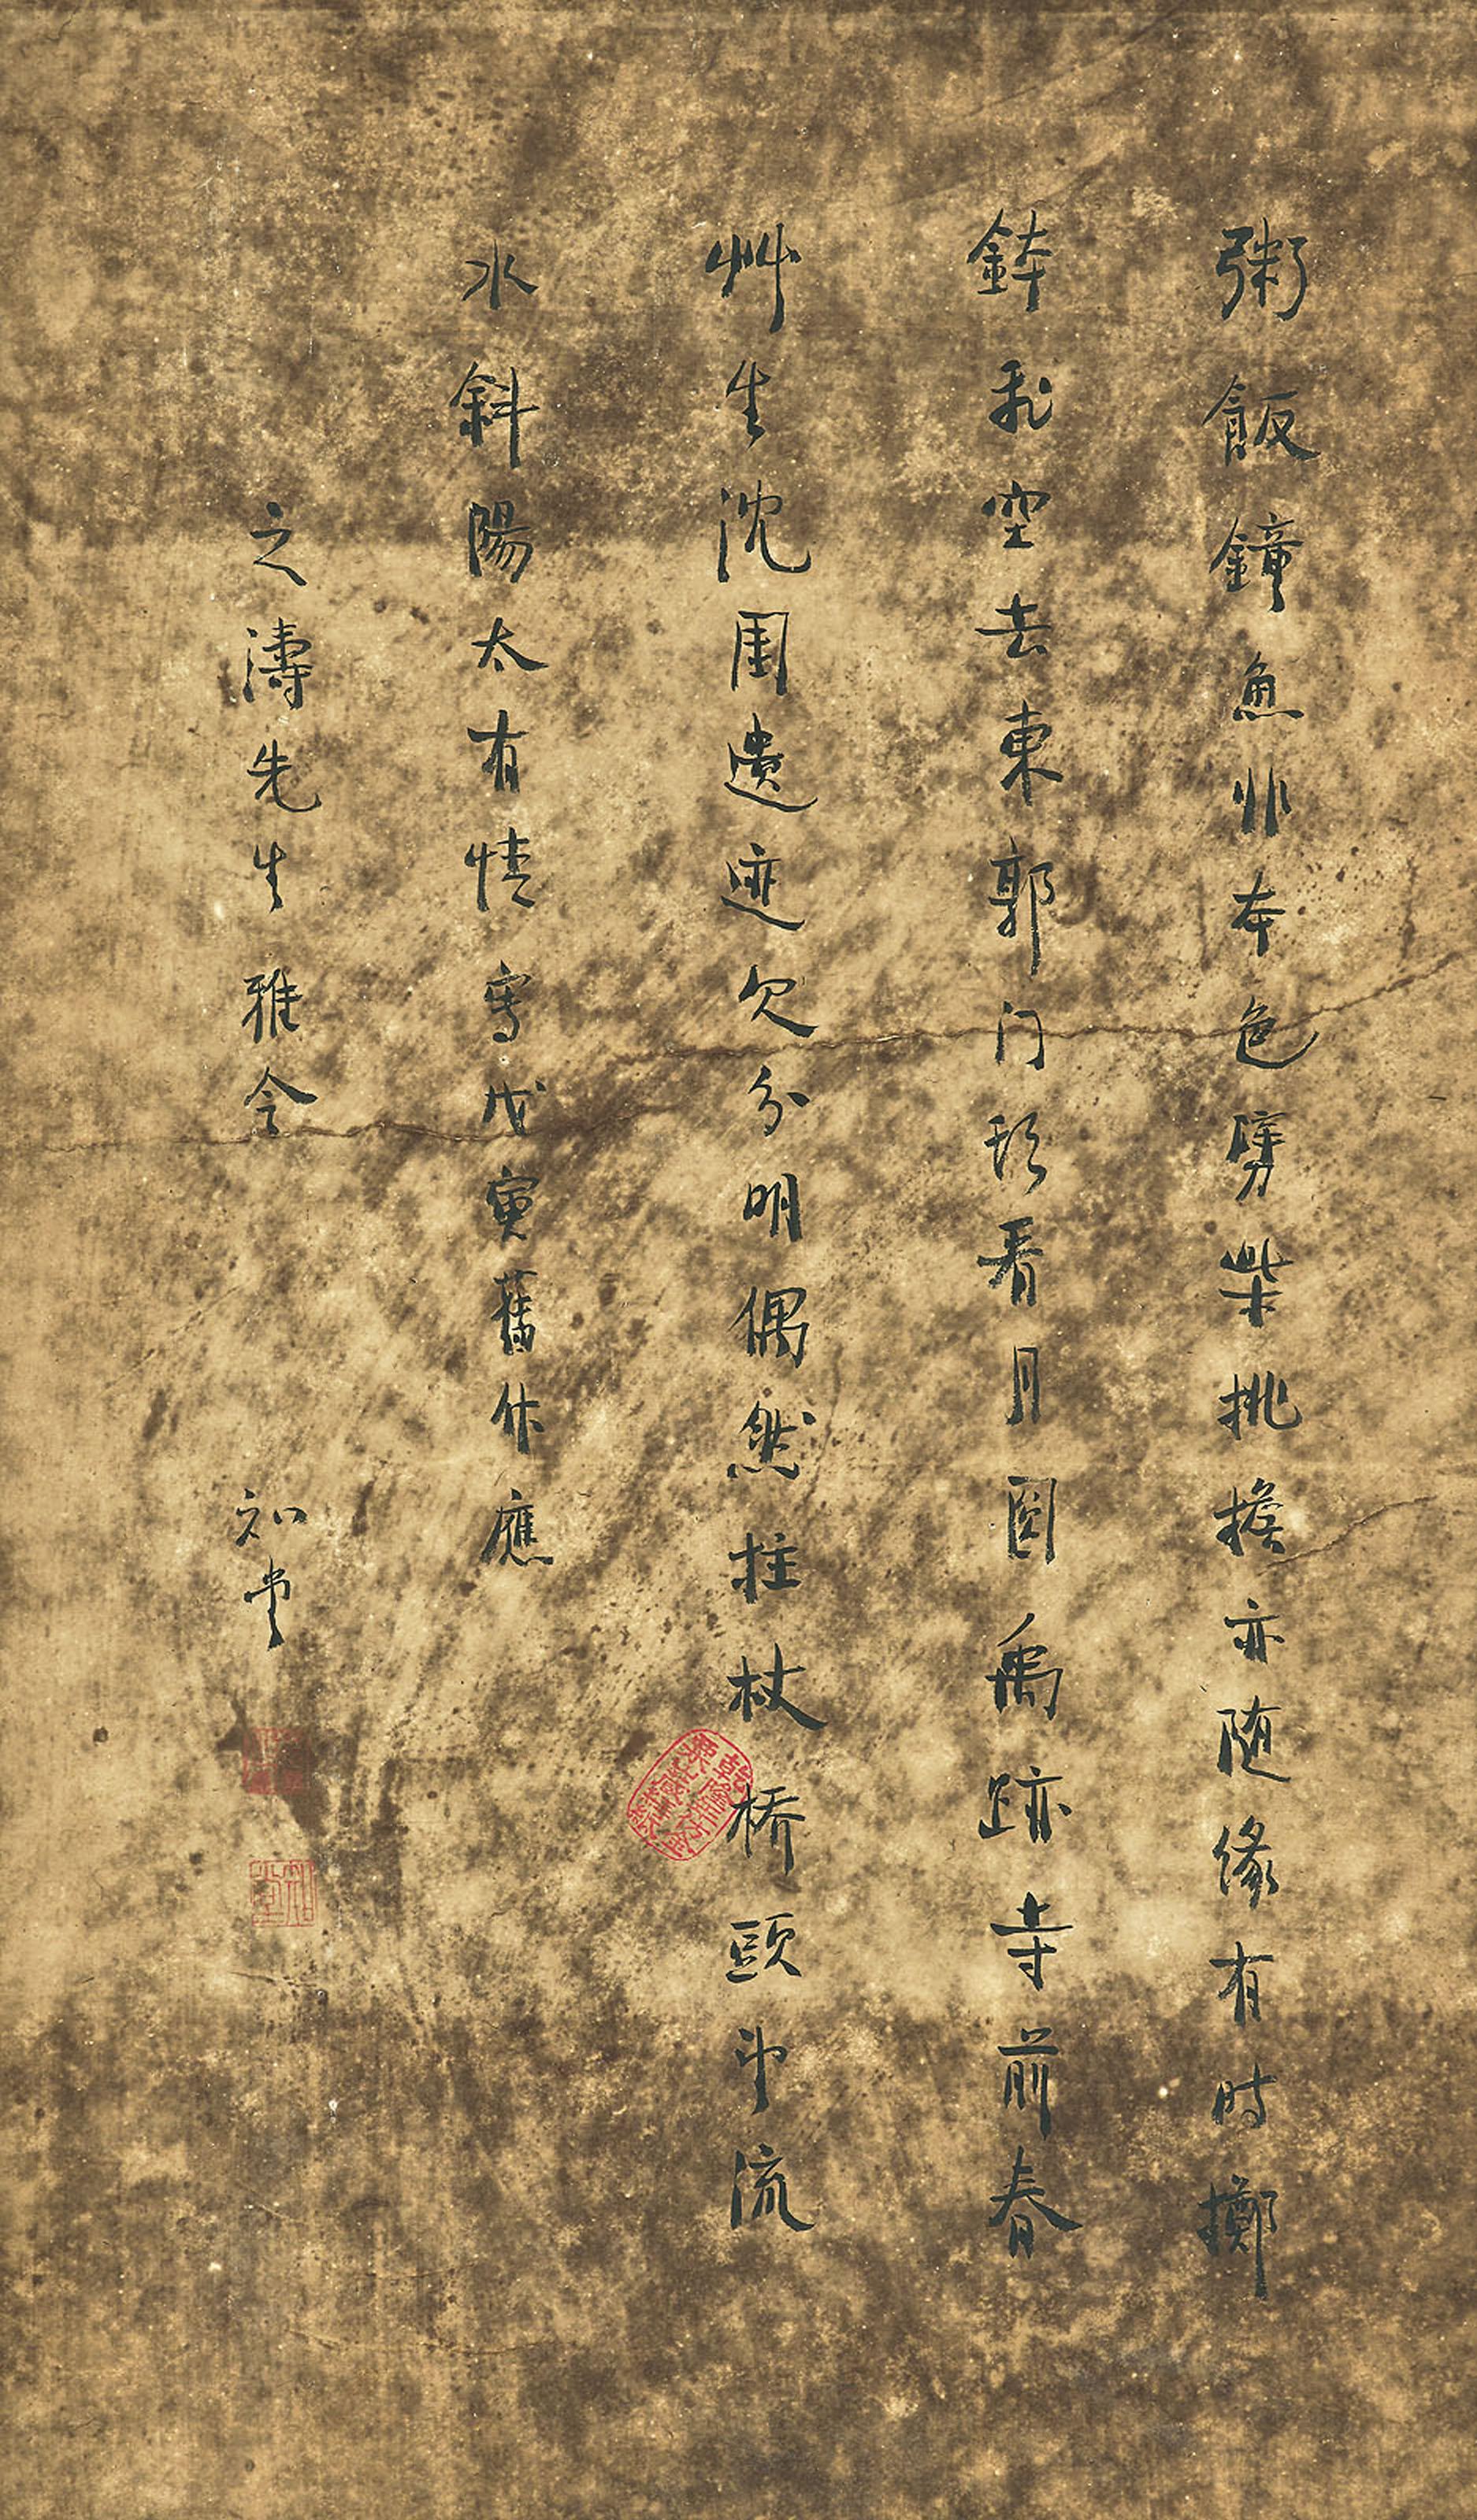 粥飯鐘魚非本色劈柴挑擔亦随緣有時擲
鉢飛空去東郭门頭看月圓禹跡寺前春
艸生沈園遺迹欠分明偶然拄杖橋頭望流
水斜陽太有情寫戊寅舊作應
之濤先生雅令
知堂
知堂